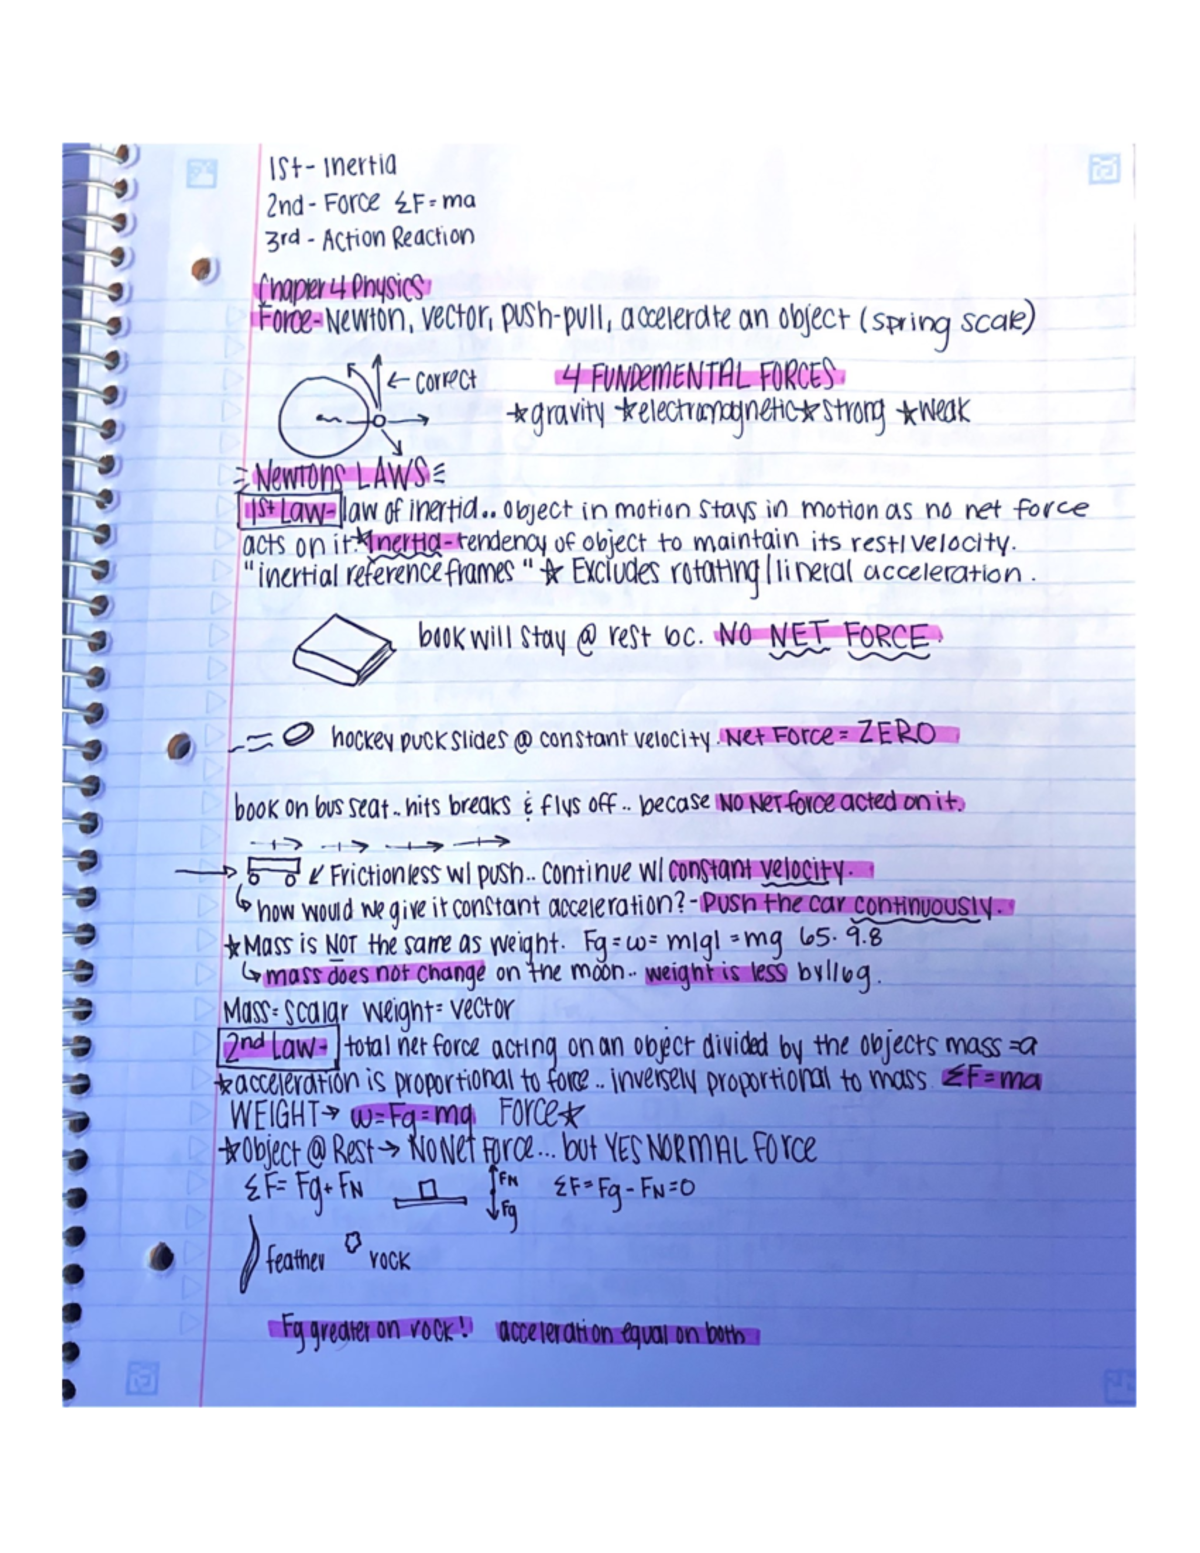 1st - Inertia
2nd - Force ΣF = ma
3rd - Action Reaction
Chapter 4 Physics
Force - Newton, vector, push-pull, accelerate an object (spring scale)
← correct
4 FUNDEMENTAL FORCES
★gravity ★electromagnetic ★strong ★weak
Newtons LAWS
1st Law - law of inertia.. object in motion stays in motion as no net force
acts on it. ★Inertia - tendency of object to maintain its rest/velocity.
"inertial reference frames" ★ Excludes rotating/lineral acceleration.
book will stay @ rest bc. NO NET FORCE.
hockey puck slides @ constant velocity. Net Force = ZERO
book on bus seat.. hits breaks & flys off.. becase NO Net force acted on it.
↙ Frictionless w/ push.. continue w/ constant velocity.
↳ how would we give it constant acceleration? - Push the car continuously.
★Mass is NOT the same as weight. Fg = w = m|g| = mg 65 · 9.8
↳ mass does not change on the moon.. weight is less by 1/6 g.
Mass = scalar weight = vector
2nd Law - total net force acting on an object divided by the objects mass = a
★acceleration is proportional to force.. inversely proportional to mass ΣF = ma
WEIGHT → w = Fg = mg Force★
★Object @ Rest → NO Net Force... but YES NORMAL FORCE
ΣF = Fg + FN FN Fg ΣF = Fg - FN = 0
feather rock
Fg greater on rock! acceleration equal on both